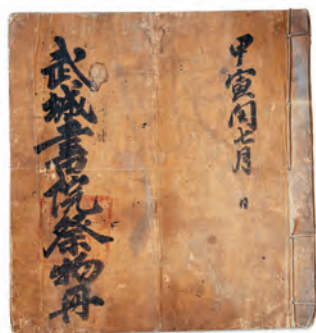 甲寅閏七月 日
武城書院祭物册